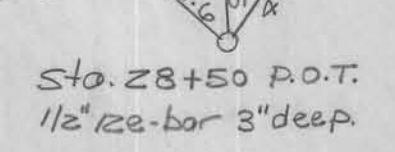 Sto. 28+50 P.O.T.
1/2" re-bar 3" deep.